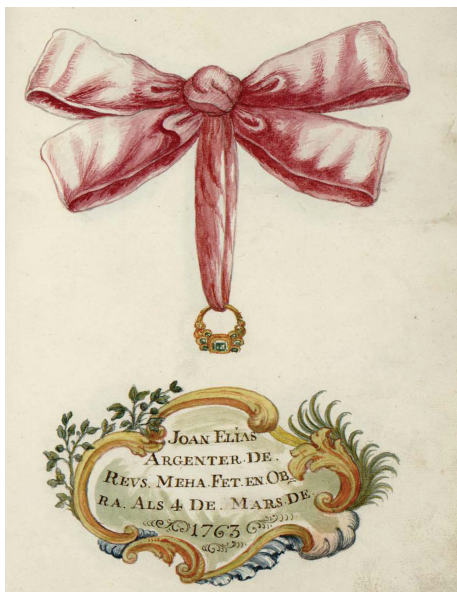 JOAN ELIAS
ARGENTER. DE.
REVS. MEHA. FET. EN. OB=
RA. ALS 4 DE. MARS. DE.
1763